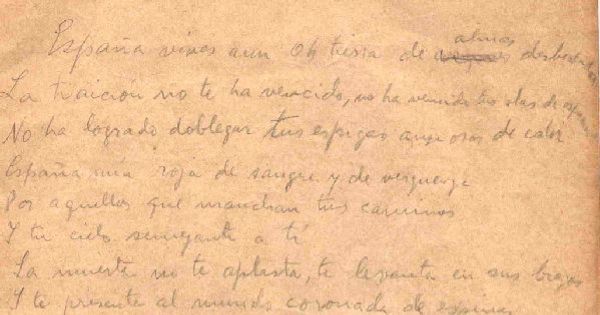 España vives aun Oh tierra de almas
La traición no te ha vencido, no ha vencido tus olas de
No ha logrado doblegar tus espigas ansiosas de calor
España mía roja de sangre y de verguenza
Por aquellos que manchan tus caminos
Y tu cielo semejante a tí
La muerte no te aplasta, te levanta en sus brazos
Y te presente al mundo coronada de espinas